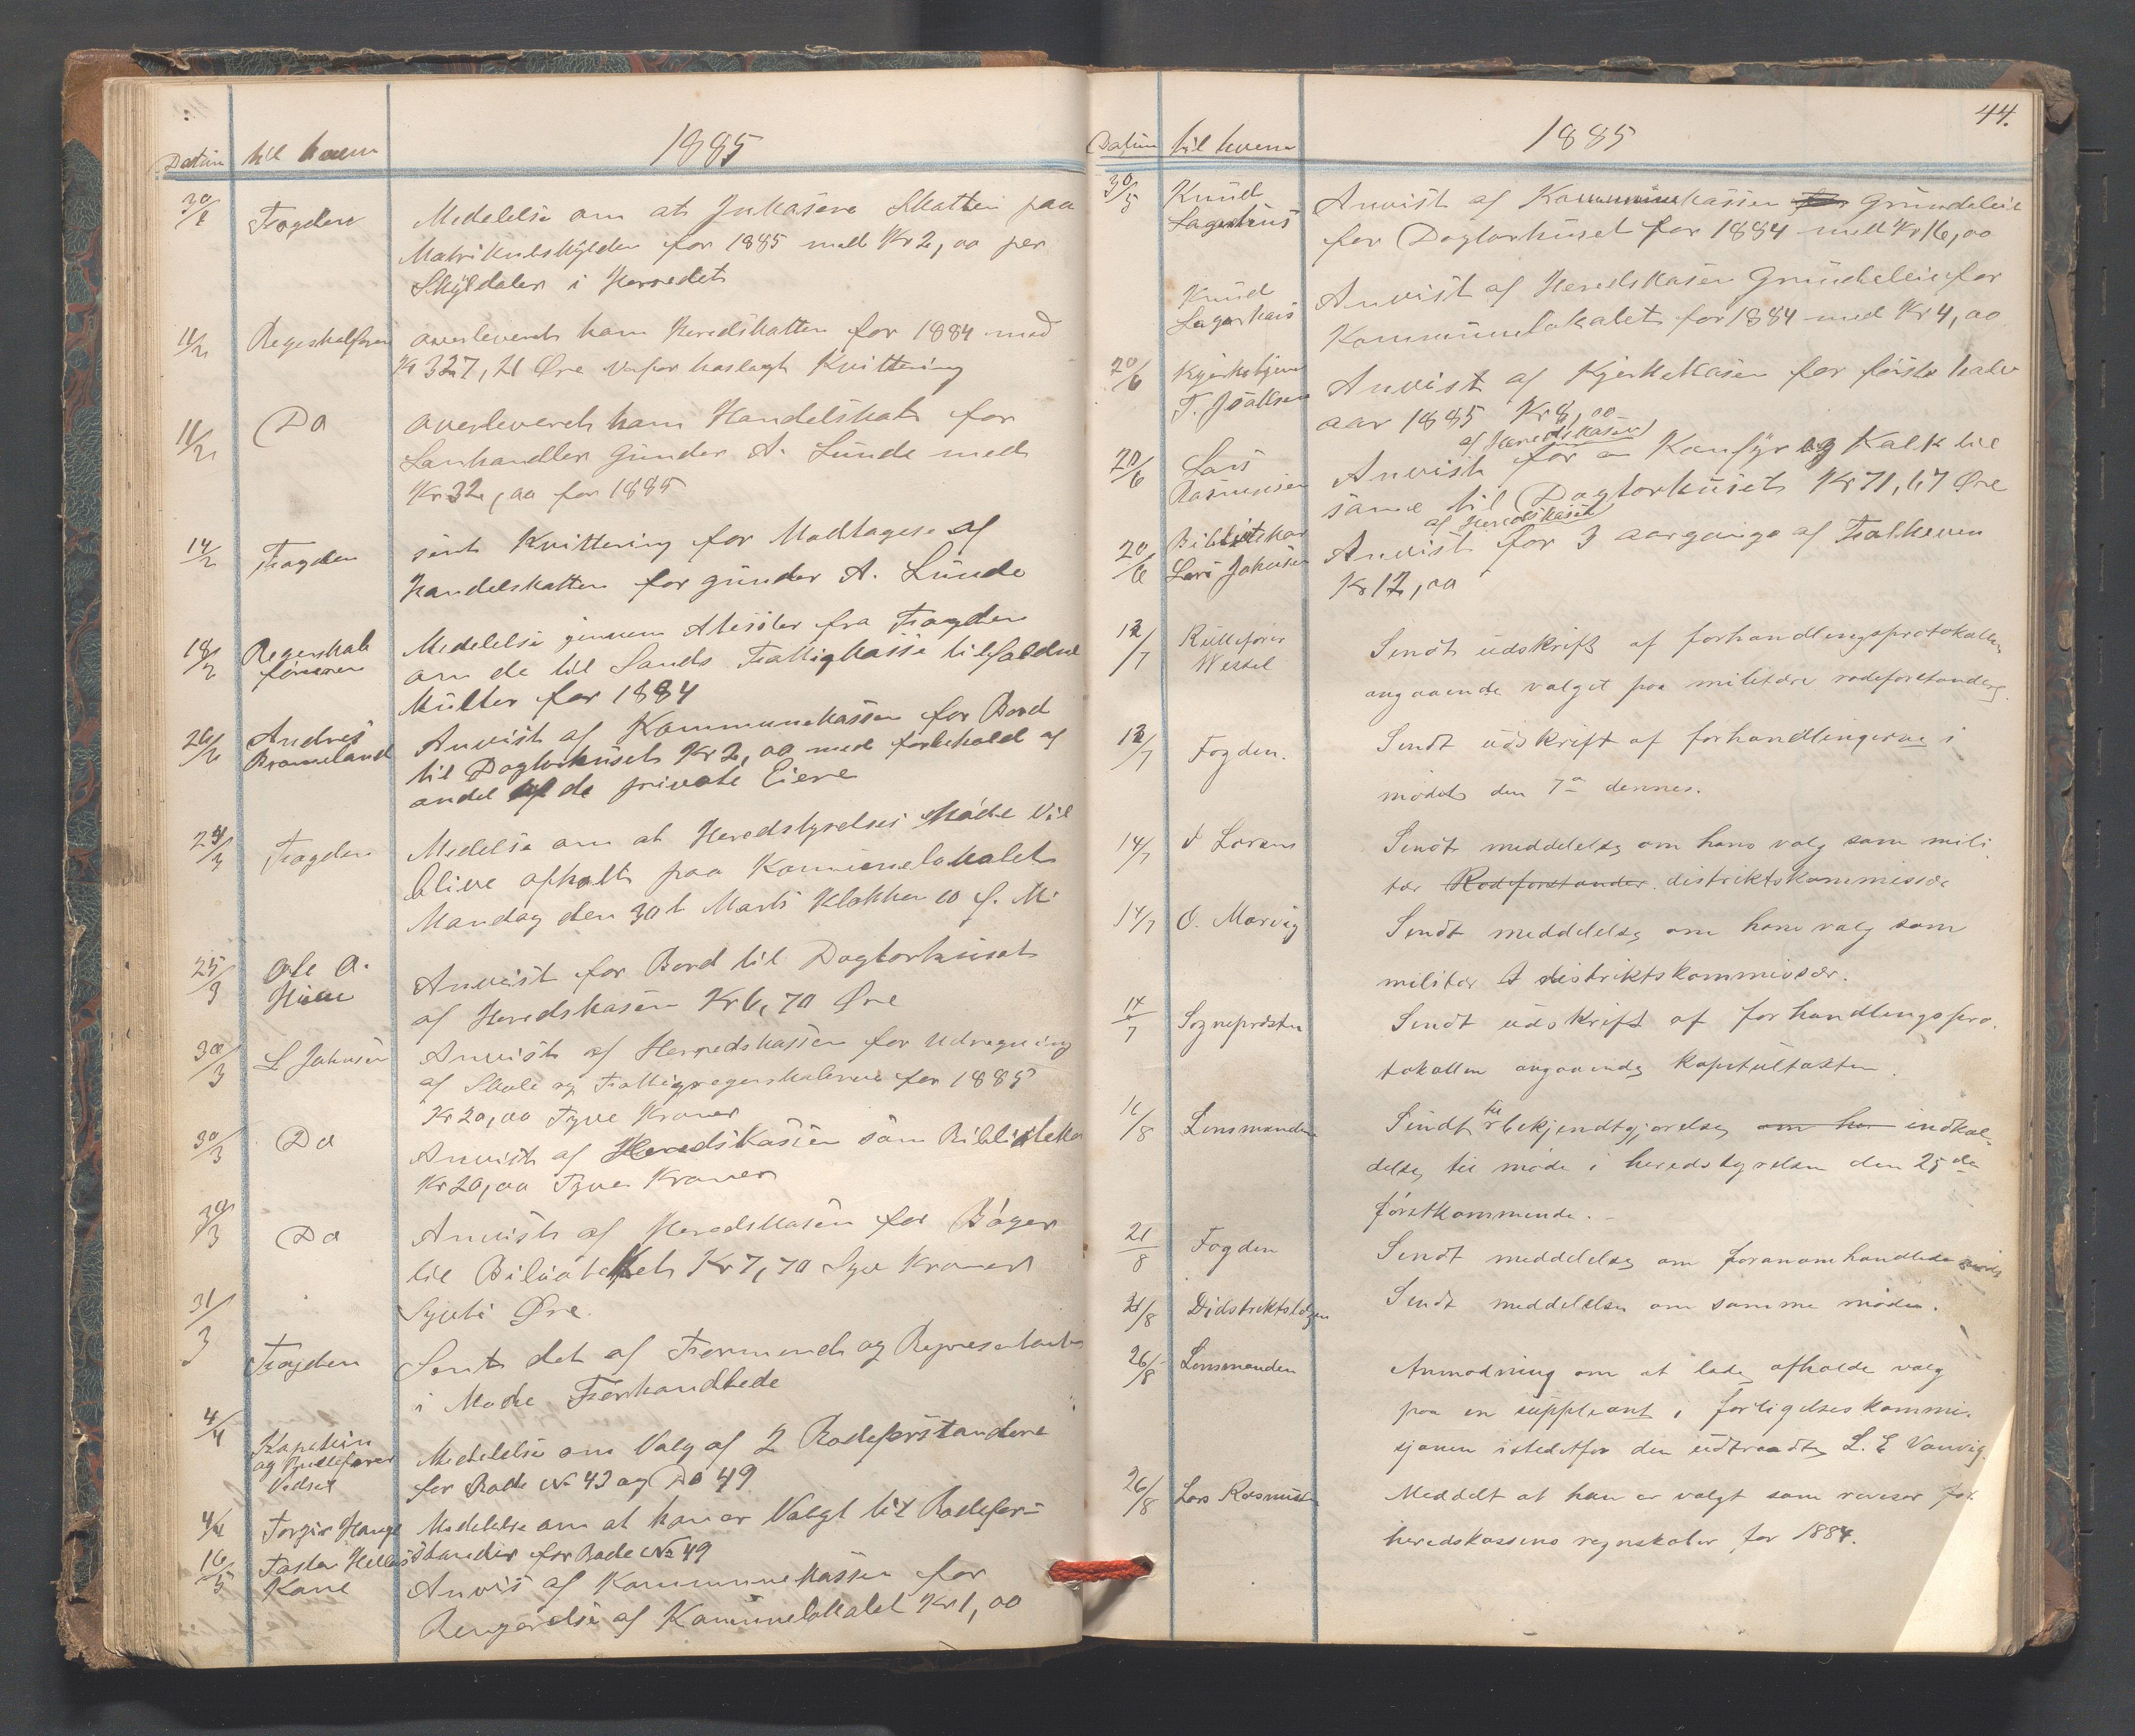 Datum til hvem 1885
30/1 Fogden Medelelse om at Inkasere Skatten paa
Matrikulskylden for 1885 med Kr 2,00 per
Skyldaler i Herredet
11/2 overleveret ham Heredskatten for 1884 med
Kr 327,21 Øre Kvittering
11/2 Do overleveret ham Handelskat for
Lanhandler Gunder A. Lunde med
Kr 32,00 for 1885
14/2 Fogden sent Kvittering for Modtagese af
Handelskatten for Gunder A. Lunde
18/2 Regenskab
føreren Medelelse gjennem Atesiter fra Fogden
om de til Sands Fattigkasse tilfaldne
Mulkter for 1884
26/2 Andreas
Brommeland Anvist af Kommunekassen for Bord
til Dogtorhuset Kr 2,00 med forbehold af
andel af de private Eiere
24/3 Fogden Medelse om at Heredstyrelses Møde vil
blive afholt paa Komunelokalet
Mandag den 30t Marts Klokken 10 f. M.
25/3 Ole O.
Hiim Anvist for Bord til Dogtorhuset
af Heredskasen Kr 6,70 Øre
30/3 L Johnsen Anvist af Herredskassen for Udregning
af Skole og Fattigregenskaberne for 1885
Kr 20,00 Tyve Kroner
30/3 Do Anvist af Heredskassen som Bibliotekar
Kr 20,00 Tyve Kroner
30/3 Do Anvist af Heredskasen for Bøger
til Biliotekket Kr 7,70 Syv Kroner
Sytti Øre.
31/3 Fogden Sent det af Formend og Representanter
i Møde Forhandlede
4/4 Kapetein
og Rullefører
Vedsel Medelelse om Valg af 2 Rodeforstandere
for Rode No 43 og Do 49
4/4 Torgir Hauge Medelelse om at han er Valgt til Rodefor-
stander for Rode No 49
16/5 Kone Anvis af Kommunekassen for
Rengørelse af Komunelokalet Kr 1,00
44.
Datum til hvem 1885
30/5 Knud
Lagerhus Anvist af Kommunekassen for Grundeleie
for Dogtorhuset for 1884 med Kr 16,00
Knud
Lagerhus Anvist af Heredskasen Grundeleie for
Kommunelokalet for 1884 med Kr 4,00
20/6 Kjerketjener
T. Anvist af Kjerkekasen for første halv
aar 1885 Kr 8,00
af Heredskasen
20/6 Lars
Rasmussen Anvist for en Komfyr og Kalk til
samme til Dogtorhuset Kr 71,67 Øre
af Heredskasen
20/6 Bibliotekar
Lars Johnsen Anvist for 3 aargange af Folkeven
Kr 12,00
12/7 Rulleforer
Wessel Sendt udskrift af forhandlingsprotokollen
angaaende valget paa militære rodeforstandere.
12/7 Fogden. Sendt udskrift af forhandlingerne i
mødet den 7de dennes.
14/7 Sendt meddelelse om hans valg som mili
tær Rodeforstander distriktskommissær
14/7 O. Marvig Sendt meddelelse om hans valg som
militær distriktskommissær.
14/7 Sognepræsten Sendt udskrift af forhandlingspro.
tokollen angaaende Kapitultaksten.
16/8 Lensmanden Sendt til bekjendtgjørelse om hr indkal-
delse til møde i heredstyrelsen den 25de
førstkommende. -
21/8 Fogden Sendt meddelelse om foranomhandlede møde
21/8 Didstriktslegen Sendt meddelelse om samme møde.
26/8 Lensmanden Anmodning om at lade afholde valg
paa en suppleant i forligelseskommi-
sjonen istedetfor den udtraadte L. E Vanvig.
26/8 Lars Rasmussen Meddelt at han er valgt som revesor for
heredskassens regnskaber for 1884.